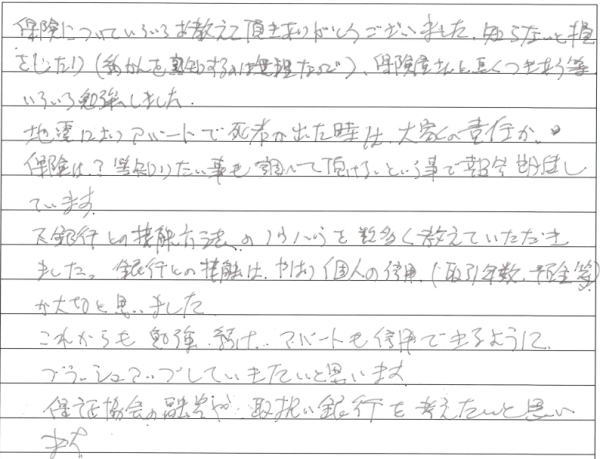 保険についていろいろお教えて頂きありがとうございました。知らないと損
をしたり(約かんを熟知するのは無理なので)、保険屋さんと長くつき合う等
いろいろ勉強しました。
地震によりアパートで死者が出た時は、大家の責任か。
保険は?等知りたい事も調べて頂けるという事で報告期待し
ています。
又銀行との接触方法のノウハウを数多く教えていただき
ました。銀行との接触は、やはり個人の信用(取引年数、預金等)
が大切と思いました
これからも勉強続け、アパートも信用できるように、
ブラッシュアップしていきたいと思います
保証協会の融資や取扱い銀行を考えたいと思い
ます